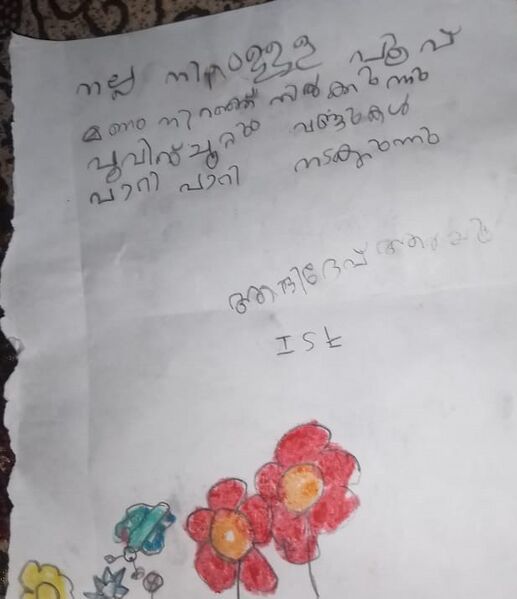 നല്ല നിറമുള്ള പൂവ്
മണം നിറഞ്ഞ് നിൽക്കുന്നു
പൂവിന് ചുറ്റും വണ്ടുകൾ
പാറി പാറി നടക്കുന്നു
ആദിദേവ്
I St